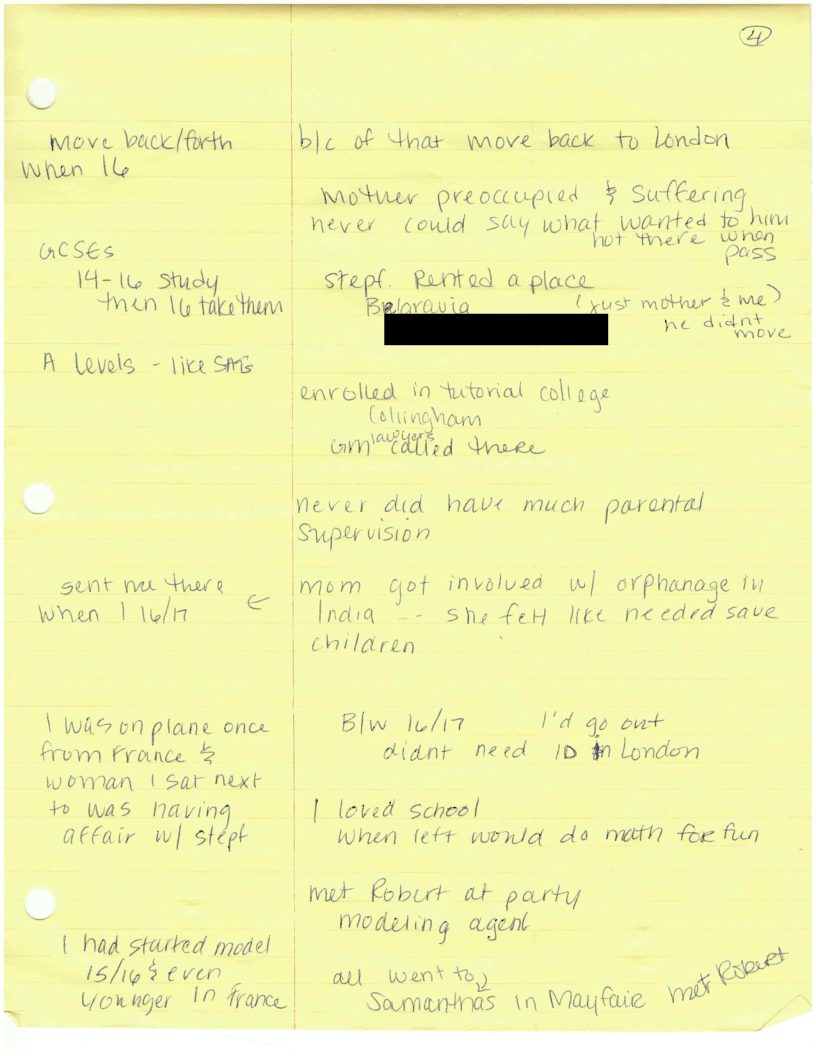 4
move back/forth
when 16
b/c of that move back to London
Mother preoccupied & Suffering
never could say what wanted to him
not there when
pass
GCSEs
14-16 study
then 16 take them
stepf. Rented a place
Belgravia (just mother & me)
he didnt
move
A Levels - like SATs
enrolled in tutorial college
Collingham
GM lawyers called there
never did have much parental
Supervision
sent me there
when I 16/17
←
mom got involved w/ orphanage in
India -- she felt like needed save
children
I was on plane once
from France &
woman I sat next
to was having
affair w/ stepf
B/w 16/17 I'd go out
didnt need ID in London
I loved school
when left would do math for fun
met Robert at party
modeling agent
I had started model
15/16 & even
younger in France
all went to
Samanthas in Mayfair met Robert